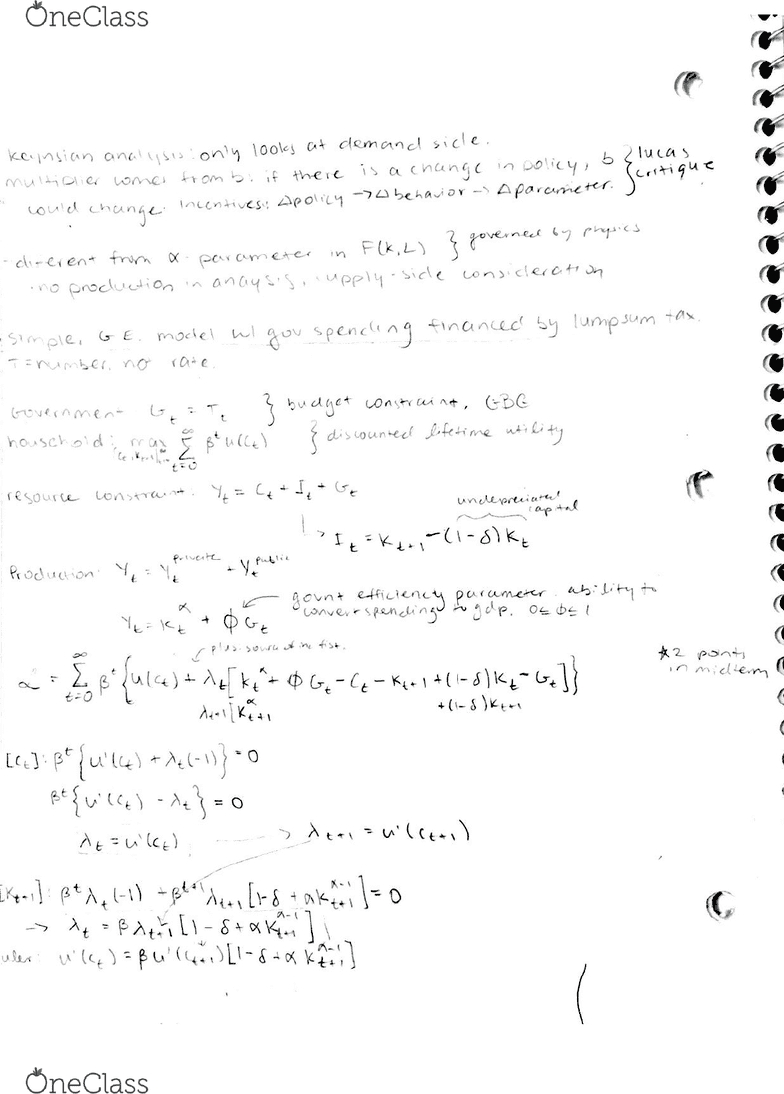 OneClass
Keynsian analysis: only looks at demand side.
multiplier comes from b. if there is a change in policy, b } lucas
could change. Incentives: Δpolicy → Δbehavior → Δparameter. } critique
different from α parameter in F(K,L) } governed by physics
no production in anaysis, supply-side consideration
simple, G.E. model w/ gov spending financed by lumpsum tax.
T = number. not rate.
Government G_t = T_t } budget constraint, GBC
household: max_{c_t, K_{t+1}} ∑_{t=0}^∞ β^t u(c_t) } discounted lifetime utility
resource constraint: Y_t = C_t + I_t + G_t
undepreciated capital
↳ I_t = K_{t+1} - (1-δ)K_t
Production: Y_t = Y_t^{private} + Y_t^{public}
Y_t = K_t^α + φG_t ← govnt efficiency parameter. ability to
convert spending to gdp. 0 ≤ φ ≤ 1
plus: source of
ℒ = ∑_{t=0}^∞ β^t {u(c_t) + λ_t[K_t^α + φG_t - C_t - K_{t+1} + (1-δ)K_t - G_t]}
*2 points
in midterm
λ_{t+1}[K_{t+1}^α +(1-δ)K_{t+1}
[C_t]: β^t{u'(c_t) + λ_t(-1)} = 0
β^t{u'(c_t) - λ_t} = 0
λ_t = u'(c_t) → λ_{t+1} = u'(c_{t+1})
[K_{t+1}]: β^t λ_t(-1) + β^{t+1} λ_{t+1}[1-δ + αK_{t+1}^{α-1}] = 0
→ λ_t = βλ_{t+1}[1-δ + αK_{t+1}^{α-1}]
uler: u'(c_t) = βu'(c_{t+1})[1-δ + αK_{t+1}^{α-1}]
OneClass